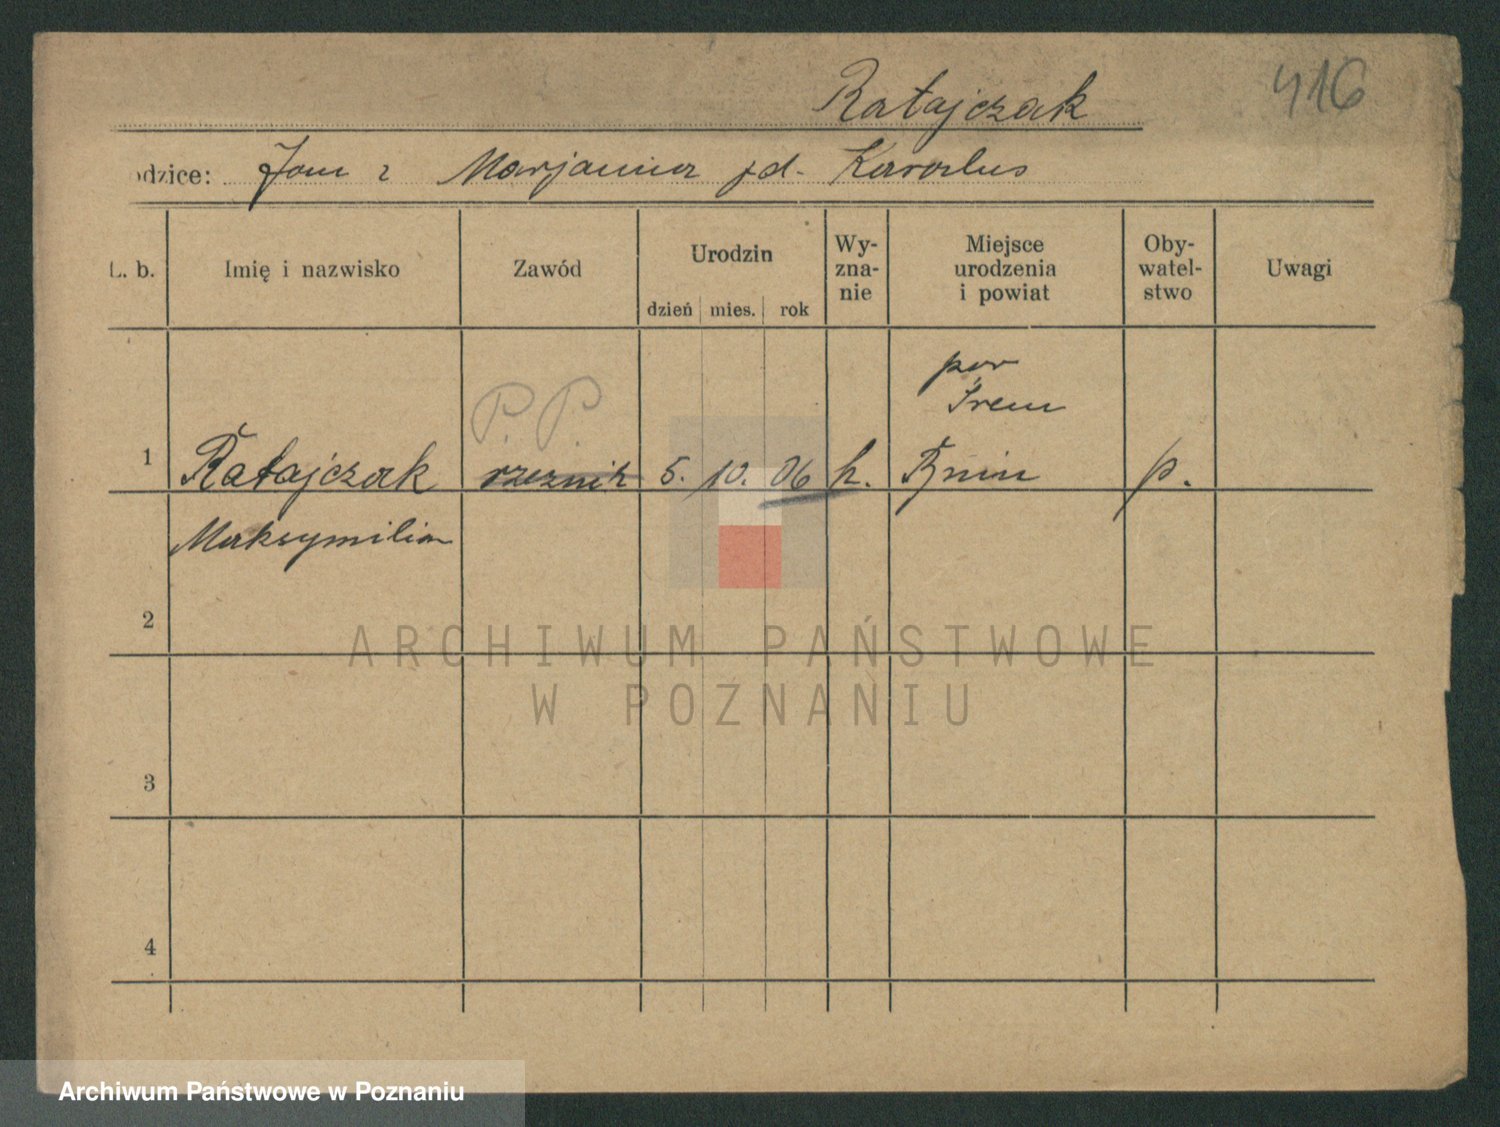 Ratajczak 416
odzice: Jan i Marjanna zd. Karolus
L. b. Imię i nazwisko Zawód Urodzin dzień mies. rok Wy-zna-nie Miejsce urodzenia i powiat Oby-watel-stwo Uwagi
P. P. pow
Śrem
1 Ratajczak rzeźnik 5. 10. 06 k. Bnin p.
Maksymilian
2
ARCHIWUM PAŃSTWOWE
W POZNANIU
3
4
Archiwum Państwowe w Poznaniu